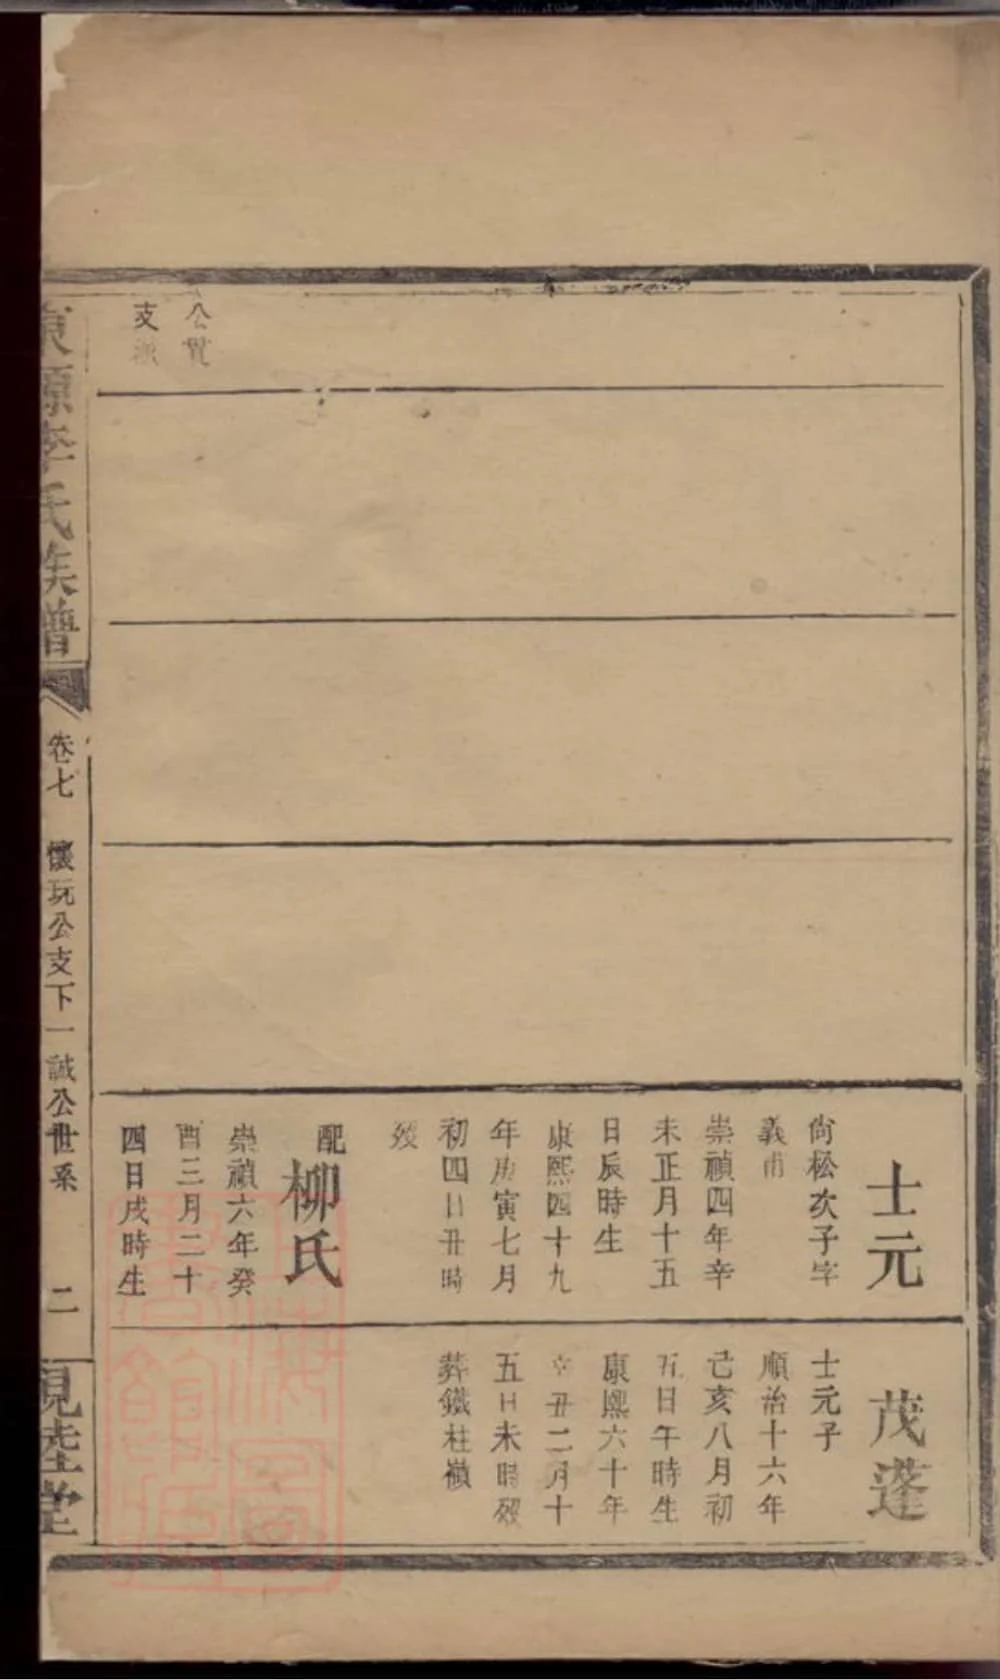 士元
尚松次子字
義甫
崇禎四年辛
未正月十五
日辰時生
康熙四十九
年庚寅七月
初四日丑時
歿
配柳氏
崇禎六年癸
酉三月二十
四日戌時生
茂蓬
士元子
順治十六年
己亥八月初
五日午時生
康熙六十年
辛丑二月十
五日未時歿
葬鐵柱嶺
公貫
支派
源李氏族譜
卷七
懷玩公支下一誠公世系
二
見陸堂
上海圖書館藏